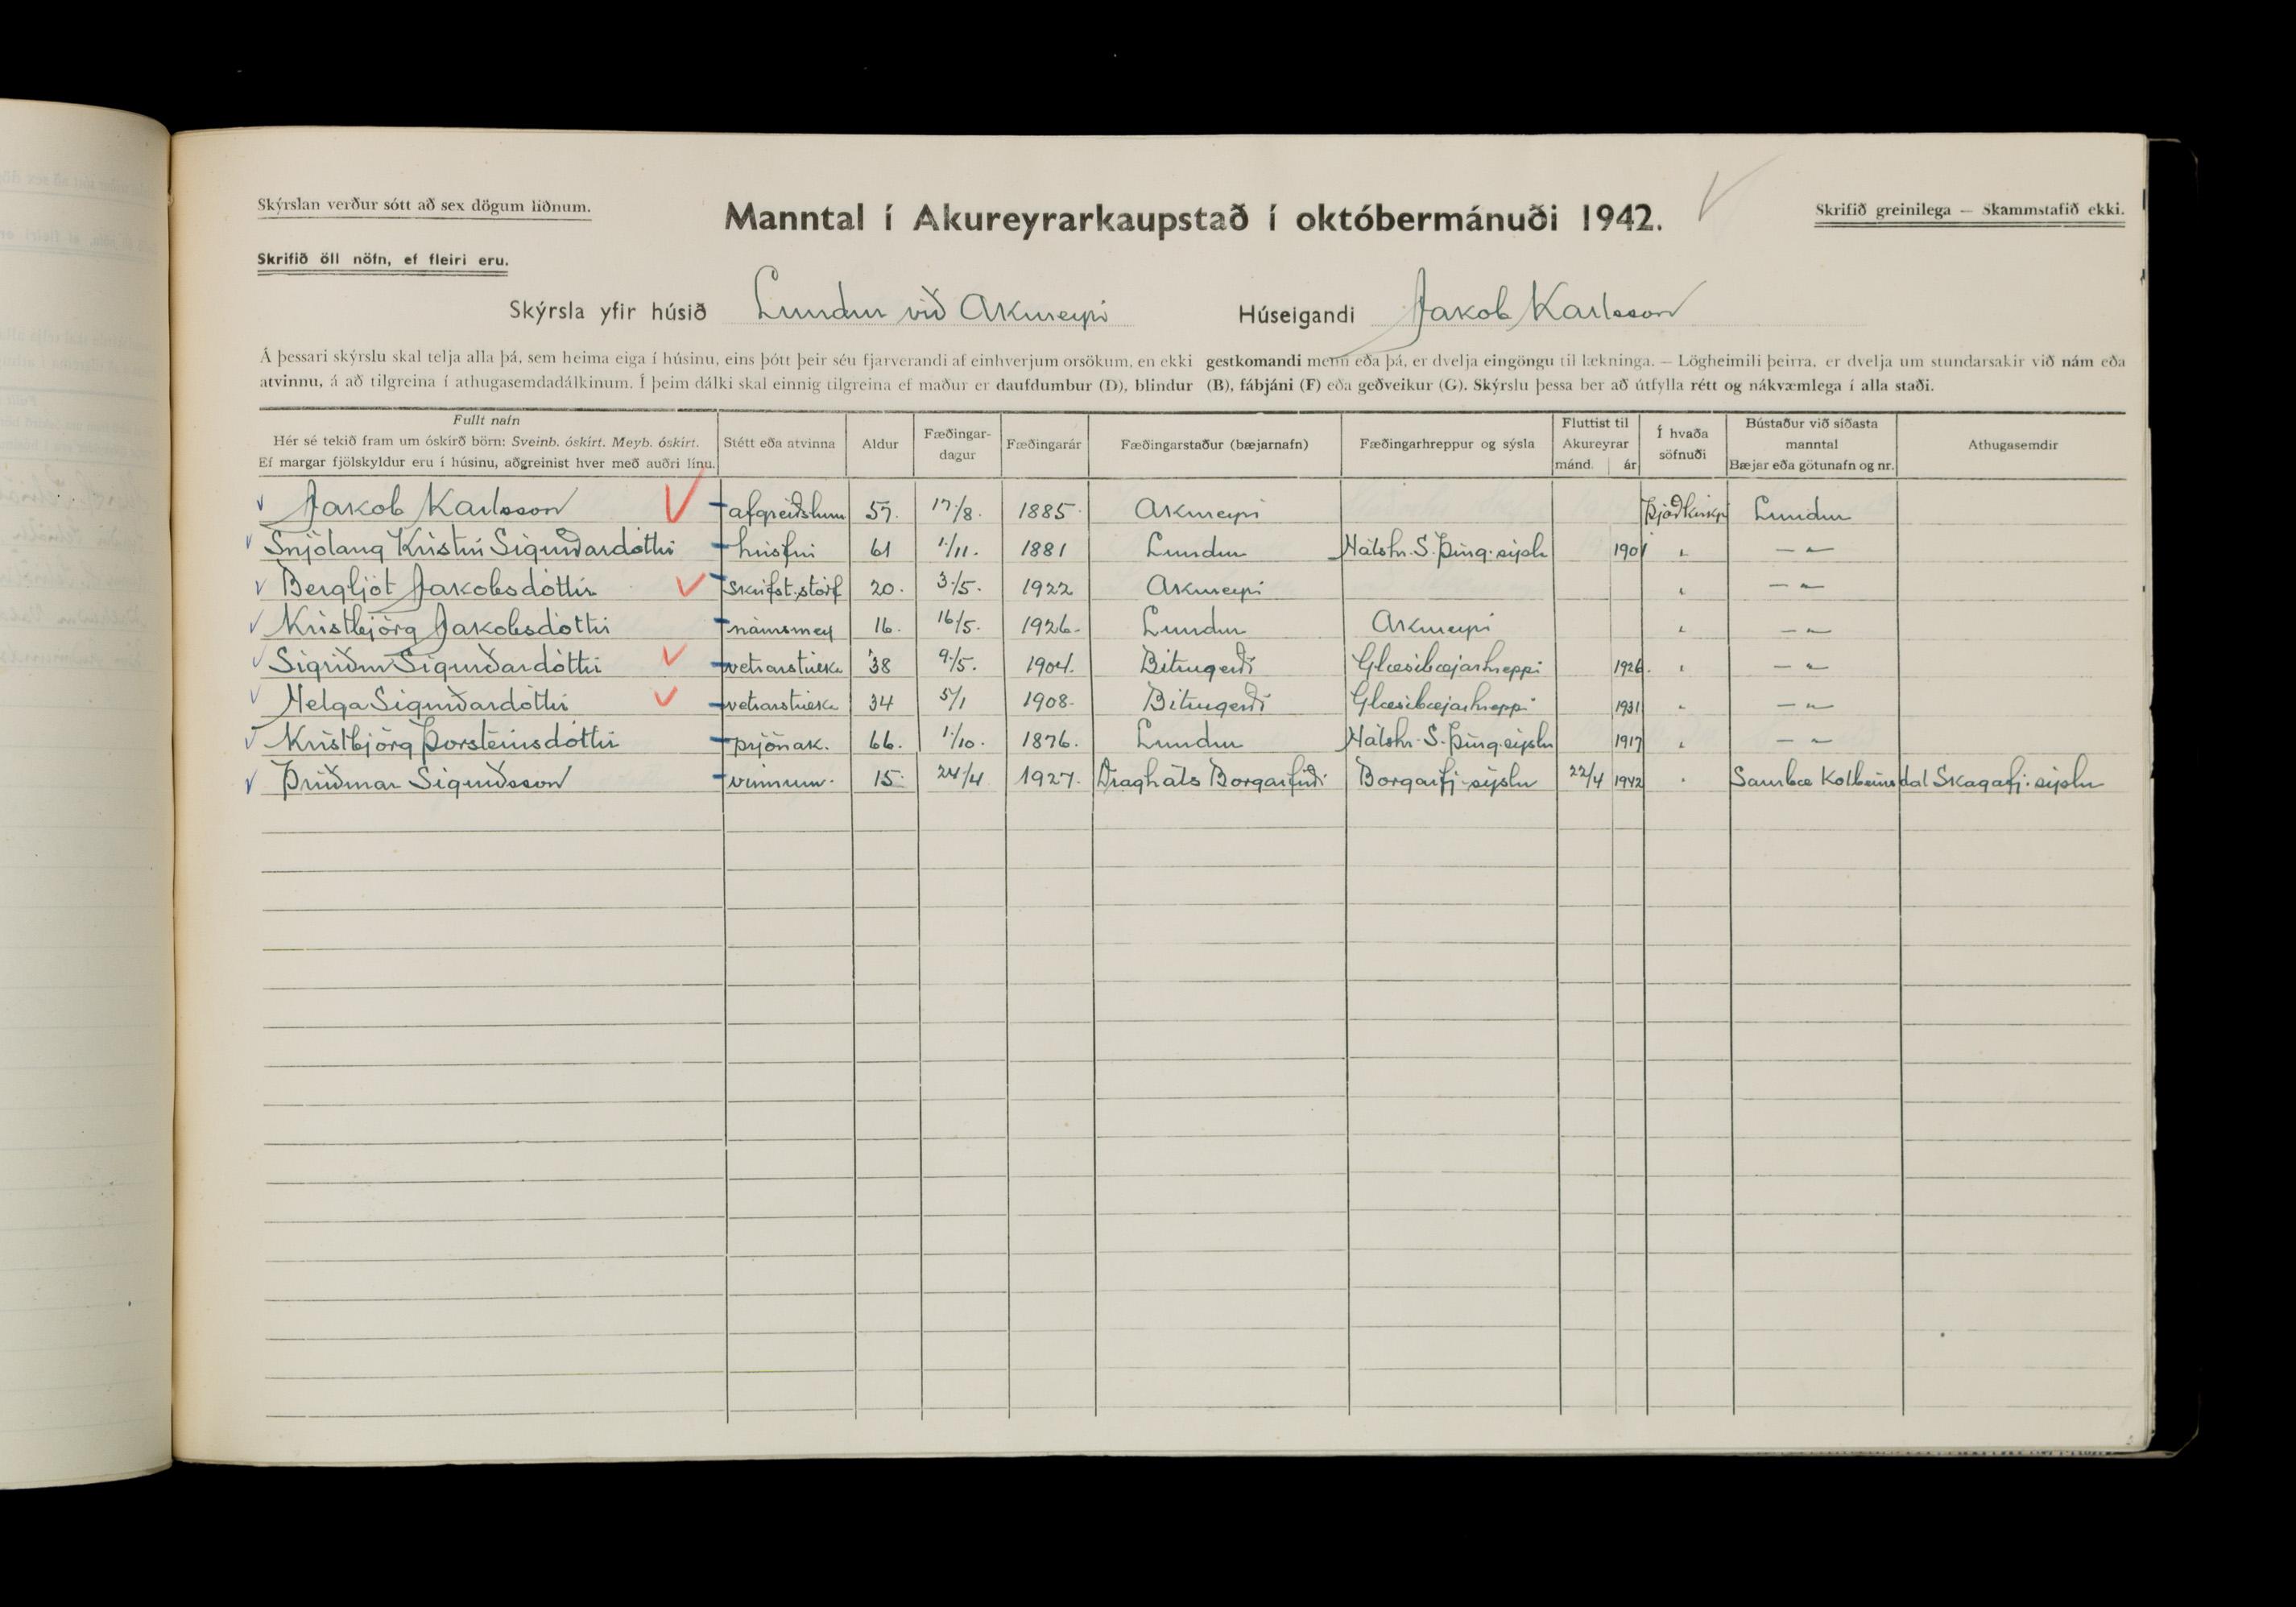 Skýrslan verður sótt að sex dögum liðnum.
Manntal í Akureyrarkaupstað í októbermánuði 1942.
Skrifið greinilega — Skammstafið ekki.
Skrifið öll nöfn, ef fleiri eru.
Skýrsla yfir húsið Lundur við Akureyri Húseigandi Jakob Karlsson
Á þessari skýrslu skal telja alla þá, sem heima eiga í húsinu, eins þótt þeir séu fjarverandi af einhverjum orsökum, en ekki gestkomandi menn eða þá, er dvelja eingöngu til lækninga. — Lögheimili þeirra, er dvelja um stundarsakir við nám eða
atvinnu, á að tilgreina í athugasemdadálkinum. Í þeim dálki skal einnig tilgreina ef maður er daufdumbur (D), blindur (B), fábjáni (F) eða geðveikur (G). Skýrslu þessa ber að útfylla rétt og nákvæmlega í alla staði.
Fullt nafn
Hér sé tekið fram um óskírð börn: Sveinb. óskírt. Meyb. óskírt.
Ef margar fjölskyldur eru í húsinu, aðgreinist hver með auðri línu.
Stétt eða atvinna
Aldur
Fæðingar-
dagur
Fæðingarár
Fæðingarstaður (bæjarnafn)
Fæðingarhreppur og sýsla
Fluttist til
Akureyrar
mánd. ár
Í hvaða
söfnuði
Bústaður við síðasta
manntal
Bæjar eða götunafn og nr.
Athugasemdir
Jakob Karlsson afgreiðslum 57. 17/8. 1885. Akureyri Þjóðkirkju Lundur
Snjólaug Kristín Sigurðardóttir húsfrú 61 1/11. 1881 Lundur Hálshr. S. Þing. sýslu 1901 " — " —
Bergljót Jakobsdóttir Skrifst. störf 20. 3/5. 1922 Akureyri " — " —
Kristbjörg Jakobsdóttir námsmey 16. 16/5. 1926. Lundur Akureyri " — " —
Sigríður Sigurðardóttir vetrarstúlka 38 9/5. 1904. Bitrugerði Glæsibæjarhreppi 1926. " — " —
Helga Sigurðardóttir vetrarstúlka 34 5/1 1908. Bitrugerði Glæsibæjarhreppi 1931 " — " —
Kristbjörg Þorsteinsdóttir prjónak. 66. 1/10. 1876. Lundur Hálshr. S. Þing. sýslu 1917 " — " —
Þriðmar Sigurðsson vinnum. 15. 24/4 1927. Draghals Borgarfirði Borgarfj. sýslu 22/4 1942 " Saurbæ Kolbeinsdal Skagafj. sýslu